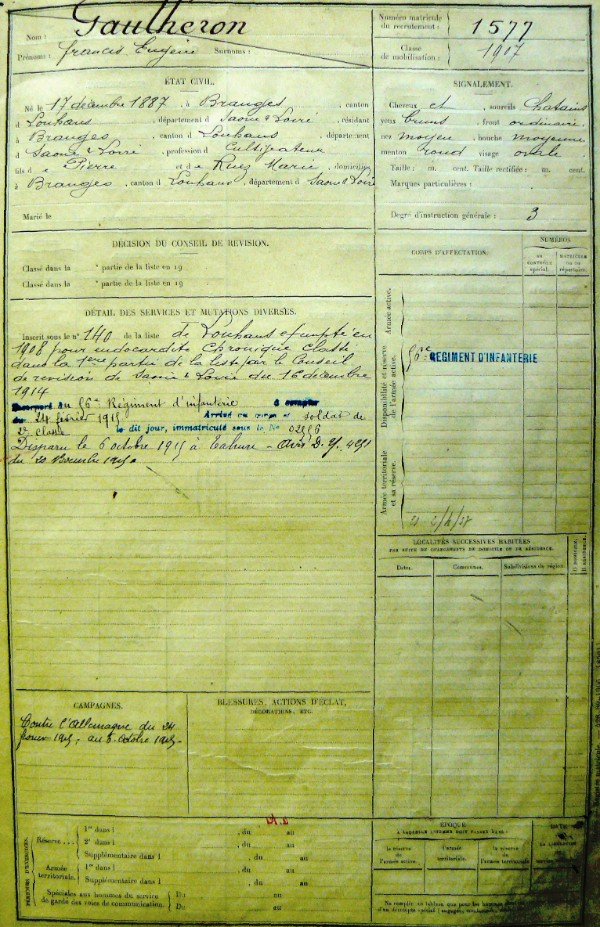 Nom : Gaulheron
Prénoms : Francis Eugène Surnoms :
Numéro matricule du recrutement : 1577
Classe de mobilisation : 1907
ÉTAT CIVIL.
Né le 17 décembre 1887, à Branges, canton
d Louhans, département d Saone & Loire, résidant
à Branges, canton d Louhans, département
d Saone & Loire, profession d Cultivateur
fils d e Pierre et d e Marie, domiciliés
à Branges, canton d Louhans, département d Saone & Loire
Marié le
SIGNALEMENT.
Cheveux et sourcils Chatains
yeux bruns, front ordinaire
nez moyen bouche moyenne
menton rond visage ovale
Taille : m. cent. Taille rectifiée : m. cent.
Marques particulières :
Degré d'instruction générale : 3
DÉCISION DU CONSEIL DE RÉVISION.
Classé dans la e partie de la liste en 19
Classé dans la e partie de la liste en 19
DÉTAIL DES SERVICES ET MUTATIONS DIVERSES.
Inscrit sous le n° 140 de la liste de Louhans exempté en
1908 pour endocardite chronique classé
dans la 1ère partie de la liste par le Conseil
de révision de Saone & Loire du 16 décembre
1914
au 56e Régiment d'infanterie à compter
du 24 février 1915 Arrivé au corps et soldat de
2e classe le dit jour, immatriculé sous le No
Disparu le 6 octobre 1915 à Tahure - Avis
CORPS D'AFFECTATION.
NUMÉROS
AU CONTRÔLE spécial.
MATRICULE OU DU répertoire.
Armée active.
Disponibilité et réserve de l'armée active.
Armée territoriale et sa réserve.
56me RÉGIMENT D'INFANTERIE
LOCALITÉS SUCCESSIVES HABITÉES
PAR SUITE DE CHANGEMENTS DE DOMICILE OU DE RÉSIDENCE.
Dates. Communes. Subdivisions de région.
D domicile. R résidence.
CAMPAGNES.
Contre l'Allemagne du 24
février 1915, au 6 octobre 1915.
BLESSURES, ACTIONS D'ÉCLAT,
DÉCORATIONS, ETC.
PÉRIODES D'EXERCICES.
Réserve
1re dans l , du au
2e dans l , du au
Supplémentaire dans l , du au
Armée territoriale.
1re dans l , du au
Supplémentaire dans l , du au
Spéciales aux hommes du service de garde des voies de communication.
Du au
Du au
ÉPOQUE
À LAQUELLE L'HOMME DOIT PASSER DANS :
la réserve de l'armée active.
l'armée territoriale.
la réserve de l'armée territoriale.
DATE DE LA LIBÉRATION